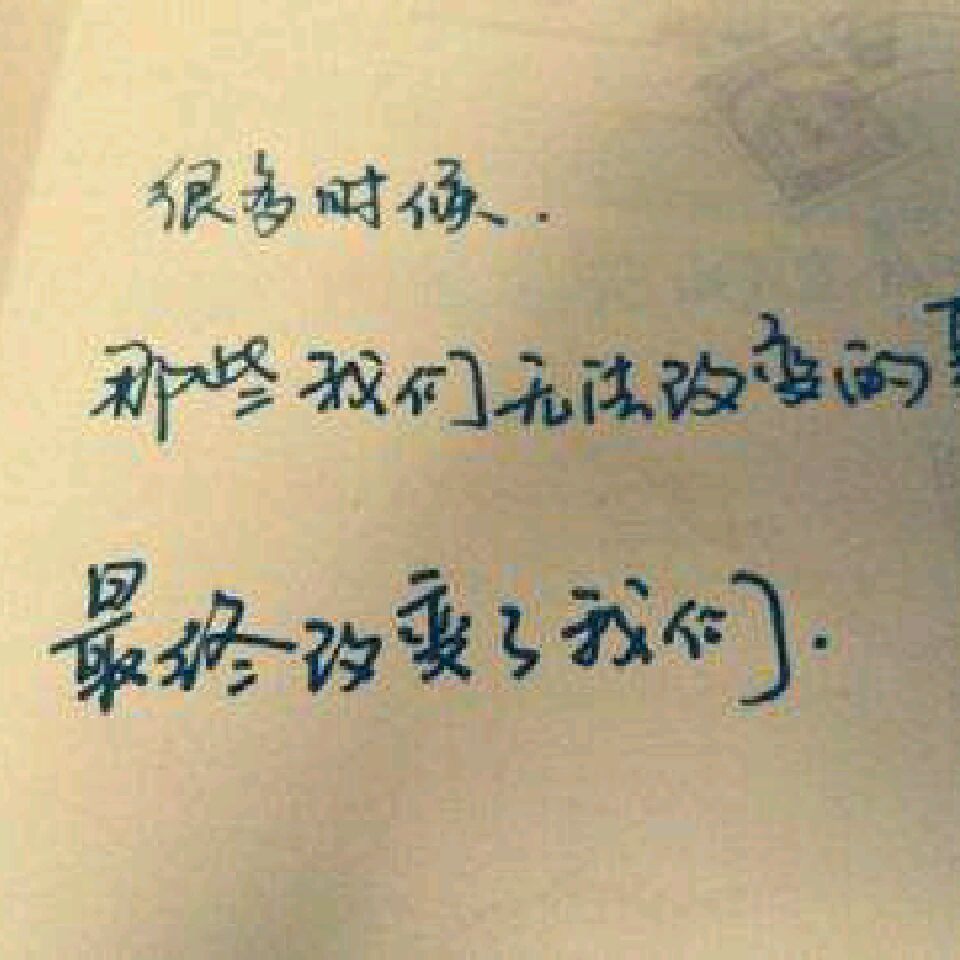 很多时候.
那些我们无法改变的
最终改变了我们.